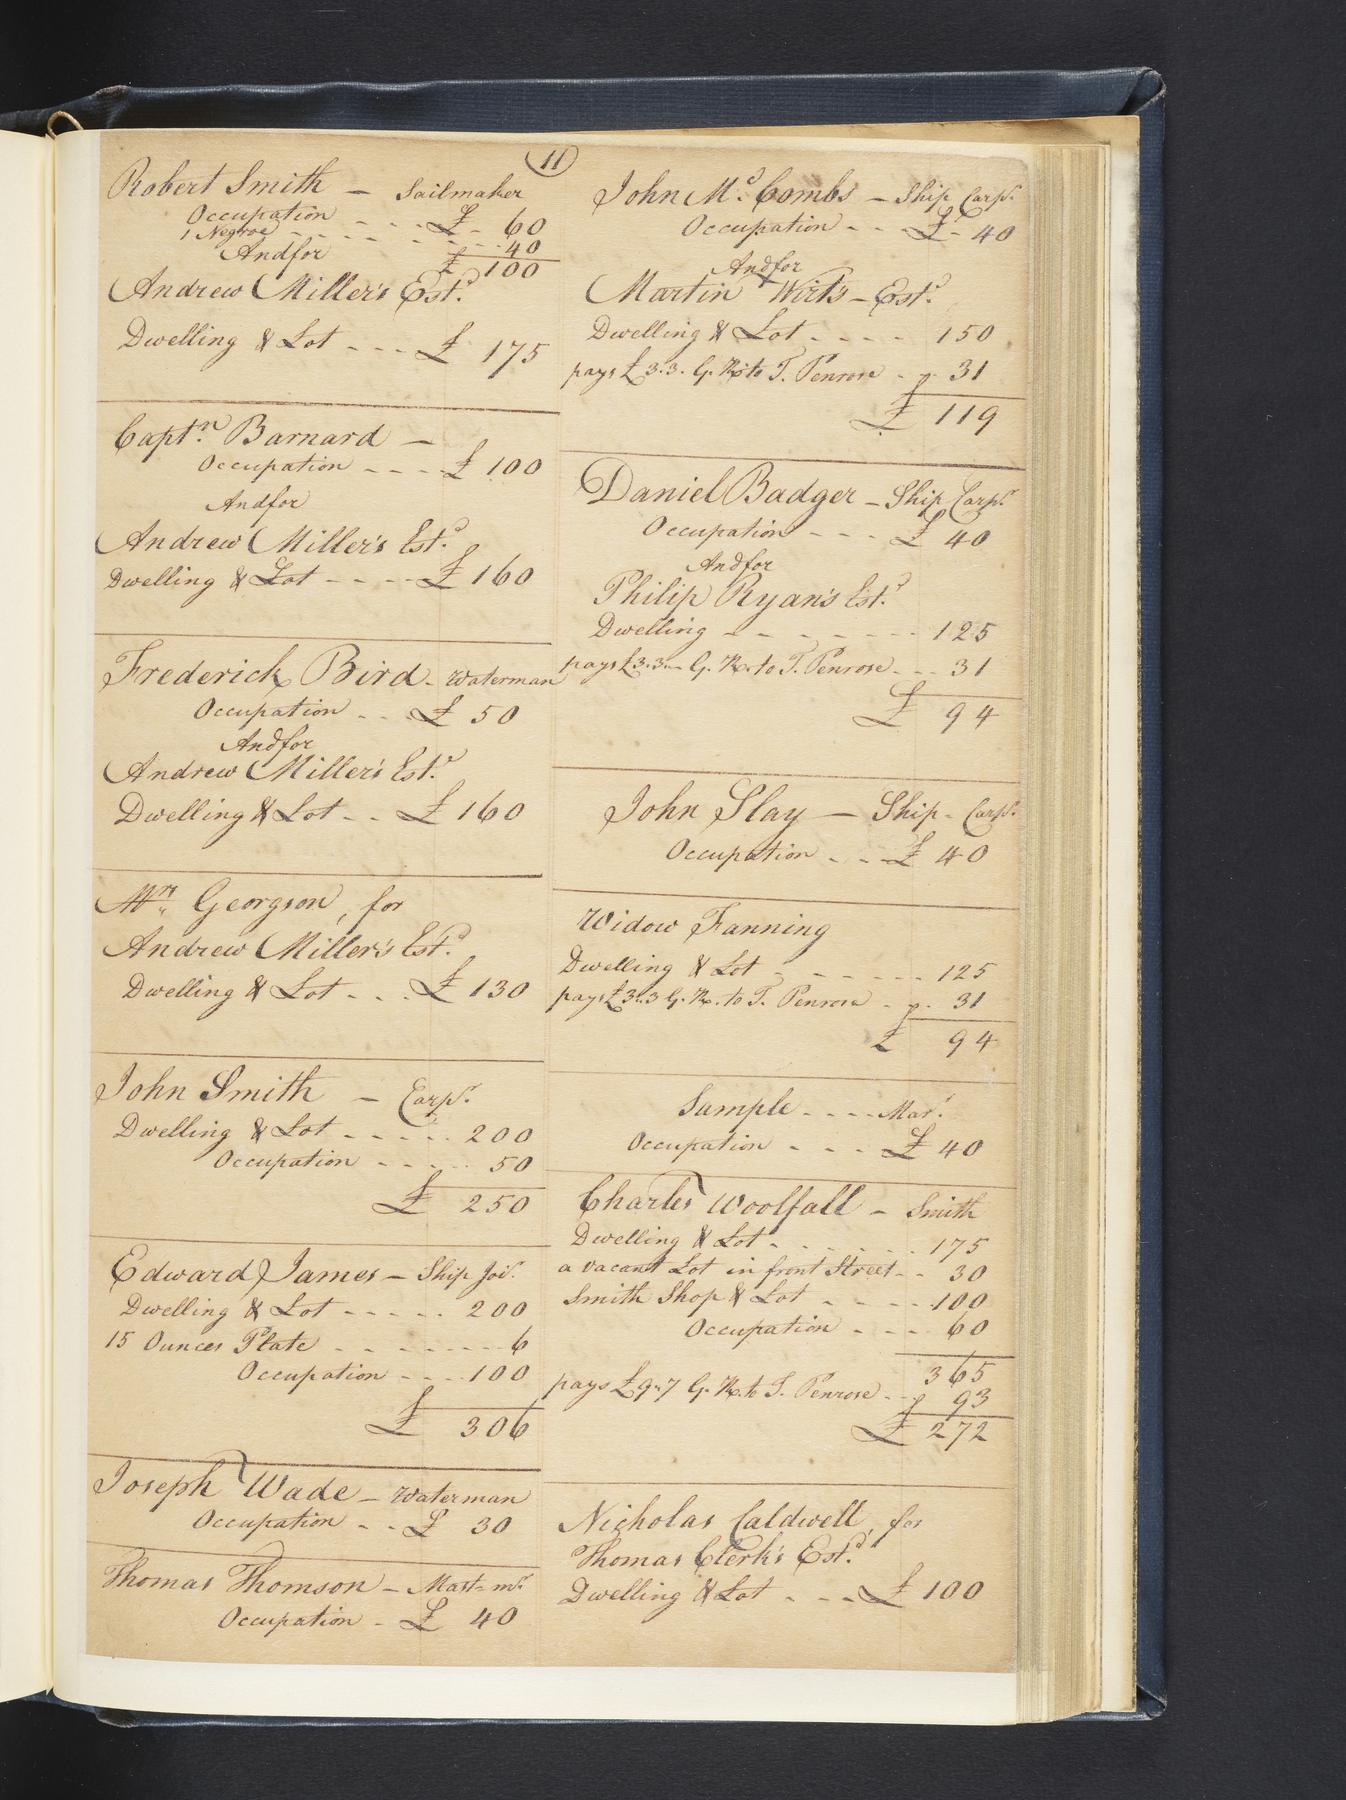 11
Robert Smith — Sailmaker
Occupation - - - £ - 60
1 Negroe - - - - - - 40
Andfor £ 100
Andrew Miller's Estd.
Dwelling & Lot - - - £ 175
Captn. Barnard —
Occupation - - - - £ 100
Andfor
Andrew Miller's Estd.
Dwelling & Lot - - - - £ 160
Frederick Bird - Waterman
Occupation - - £ 50
Andfor
Andrew Miller's Estd.
Dwelling & Lot - - £ 160
Georgson, for
Andrew Miller's Estd.
Dwelling & Lot - - - £ 130
John Smith — Carpr.
Dwelling & Lot - - - - - 200
Occupation - - - - - 50
£ 250
Edward James — Ship Joir.
Dwelling & Lot - - - - - 200
15 Ounces Plate - - - - - - - 6
Occupation - - - - 100
£ 306
Joseph Wade — Waterman
Occupation - - £ 30
Thomas Thomson — Mast-mr.
Occupation - £ 40
John Mc. Combs — Ship Carpr.
Occupation - - - £ - 40
Andfor
Martin Wirts — Estd.
Dwelling & Lot - - - - 150
pays £3.3. G. R. to T. Penrose - p. 31
£ 119
Daniel Badger — Ship Carpr.
Occupation - - - £ 40
Andfor
Philip Ryan's Estd.
Dwelling - - - - - - - 125
pays £3.3.- G. R. to T. Penrose - - - 31
£ 94
John Slay — Ship - Carpr.
Occupation - - - £ 40
Widow Fanning
Dwelling & Lot - - - - - - 125
pays £3.3 G. R. to T. Penrose - p. 31
£ 94
Sample - - - - Marr.
Occupation - - - £ 40
Charles Woolfall — Smith
Dwelling & Lot - - - - - - 175
a vacant Lot in front Street - - 30
Smith Shop & Lot - - - - 100
Occupation - - - - 60
365
pays £9.7 G. R. to T. Penrose - - p 93
£ 272
Nicholas Caldwell, for
Thomas Clerk's Estd.
Dwelling & Lot - - - £ 100